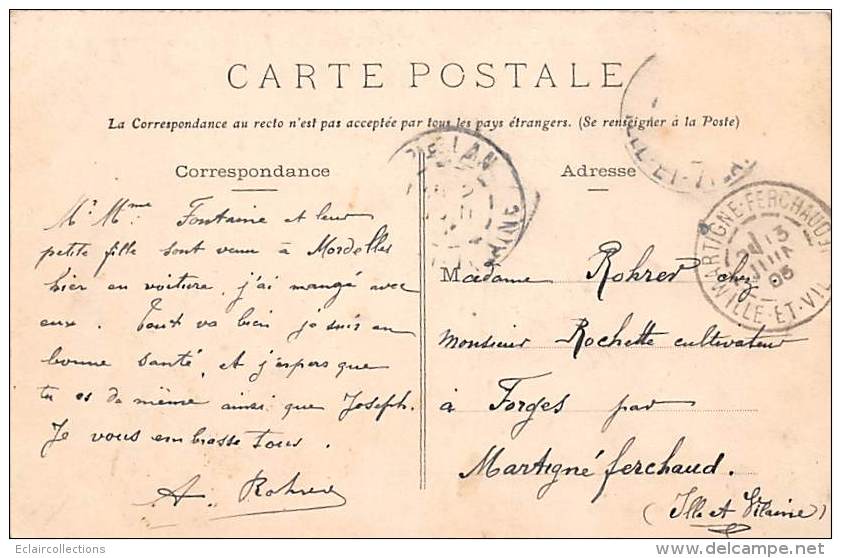 CARTE POSTALE
La Correspondance au recto n'est pas acceptée par tous les pays étrangers. (Se renseigner à la Poste)
Correspondance
Mr Mme Fontaine et leur
petite fille sont venu à Mordelles
hier en voiture, j'ai mangé avec
eux. Tout va bien je suis en
bonne santé, et j'espers que
tu es de même ainsi que Joseph.
Je vous embrasse tous.
A. Rohrer
Adresse
Madame Rohrer chez
Monsieur Rochette cultivateur
à Forges par
Martigné ferchaud.
(Ille et Vilaine)
ELAN
ARTIGNÉ-FERCHAUD
13
JUIN
05
ILLE-ET-VIL
Eclaircollections
www.delcampe.net